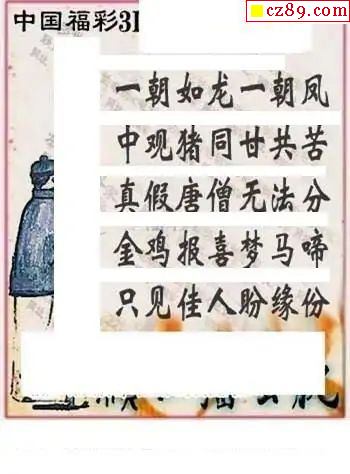 cz89.com
中国福彩3D
一朝如龙一朝凤
中观猪同甘共苦
真假唐僧无法分
金鸡报喜梦马啼
只见佳人盼缘份